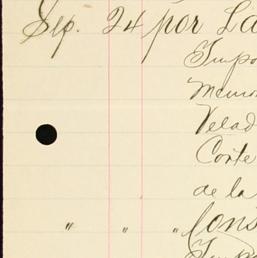 Sep. 24 por La
Impo
Memo
Velad
Corte
de la
" " " Cons
Impo